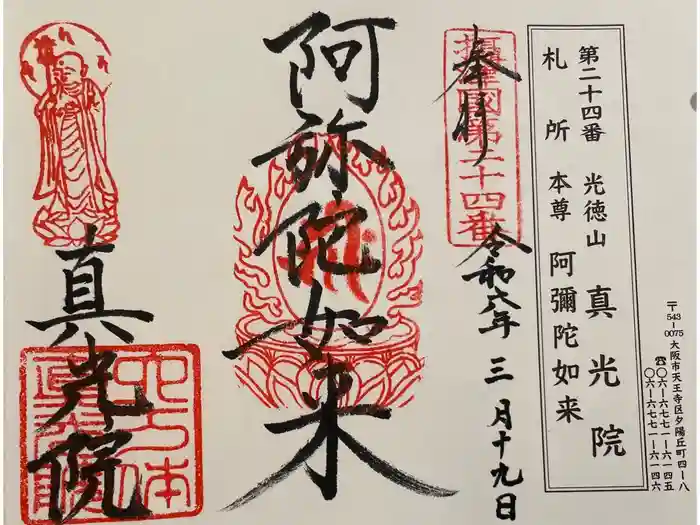 第二十四番 光徳山 真光院
札所 本尊 阿彌陀如来
〒543-0075 大阪市天王寺区夕陽丘町四-八
☎〇六-六七七一-六一四五
〇六-六七七一-六一四六
奉拝
摂津國第二十四番
令和八年 三月十九日
阿弥陀如来
真光院